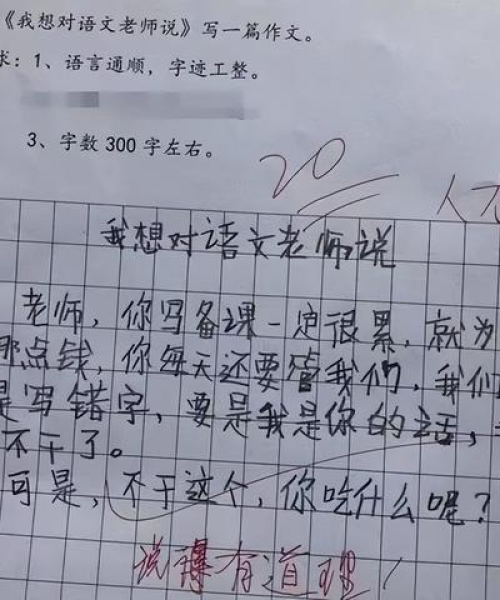 《我想对语文老师说》写一篇作文。
求：1、语言通顺，字迹工整。
3、字数 300 字左右。
20
人
我想对语文老师说
老师，你写备课一定很累，就为
那点钱，你每天还要管我们，我们
是写错字，要是我是你的话，
不干了。
可是，不干这个，你吃什么呢？
说得有道理！